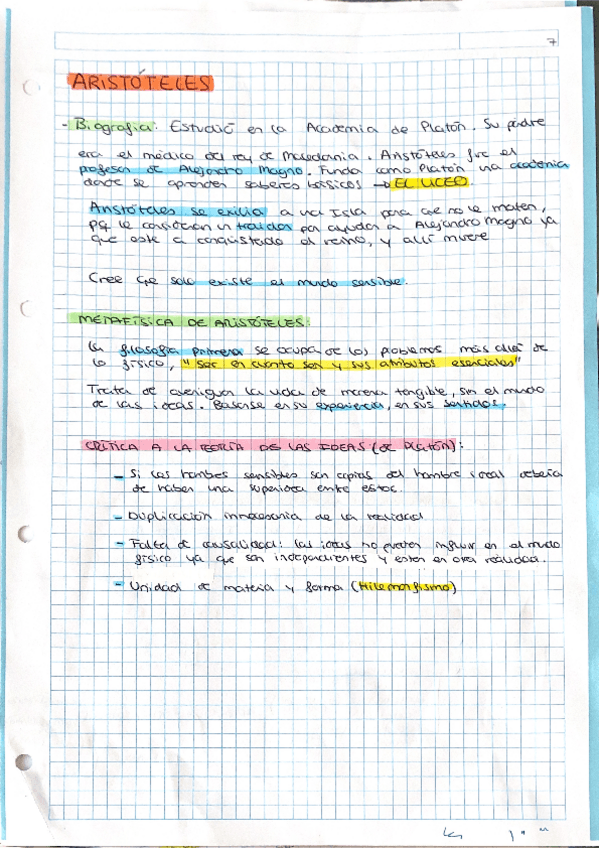 7
ARISTÓTELES
- Biografía: Estudió en la Academia de Platón. Su padre
era el médico del rey de Macedonia. Aristóteles fue el
profesor de Alejandro Magno. Funda como Platón una academia
donde se aprenden saberes básicos → EL LICEO.
Aristóteles se exilia a una Isla para que no le maten,
pq le consideran un traidor por ayudar a Alejandro Magno ya
que este a conquistado el reino, y allí muere
Cree que solo existe el mundo sensible.
METAFÍSICA DE ARISTÓTELES:
La filosofía primera se ocupa de los problemas más allá de
lo físico, "Ser en cuanto ser y sus atributos esenciales"
Trata de averiguar la vida de manera tangible, sin el mundo
de las ideas. Basarse en su experiencia, en sus sentidos.
CRÍTICA A LA TEORÍA DE LAS IDEAS (de PLATÓN):
- Si los hombres sensibles son copias del hombre ideal debería
de haber una superiora entre estos.
- Duplicación innecesaria de la realidad
- Falta de causalidad: las ideas no pueden influir en el mundo
físico ya que son independientes y estan en otra realidad.
- Unidad de materia y forma (Hilemorfismo)